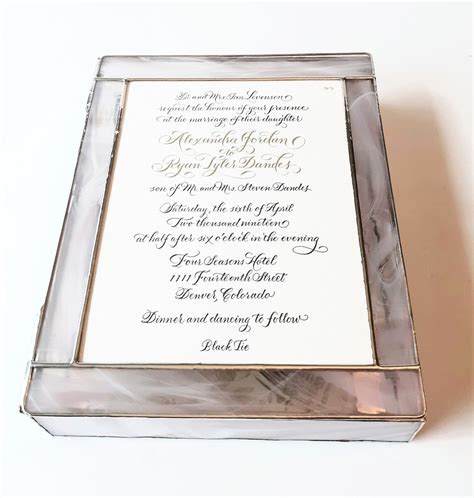 Dr. and Mrs. Jim Levenson
request the honour of your presence
at the marriage of their daughter
Alexandra Jordan
to
Ryan Tyler Dandes
son of Mr. and Mrs. Steven Dandes
Saturday, the sixth of April
Two thousand nineteen
at half after six o'clock in the evening
Four Seasons Hotel
1111 Fourteenth Street
Denver, Colorado
Dinner and dancing to follow
Black Tie